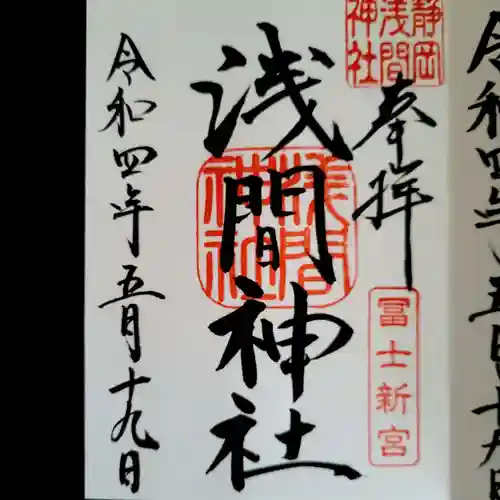 静岡
浅間
神社
奉拝
冨士新宮
浅間神社
浅間
神社
令和四年五月十九日
令和四年五月十九日